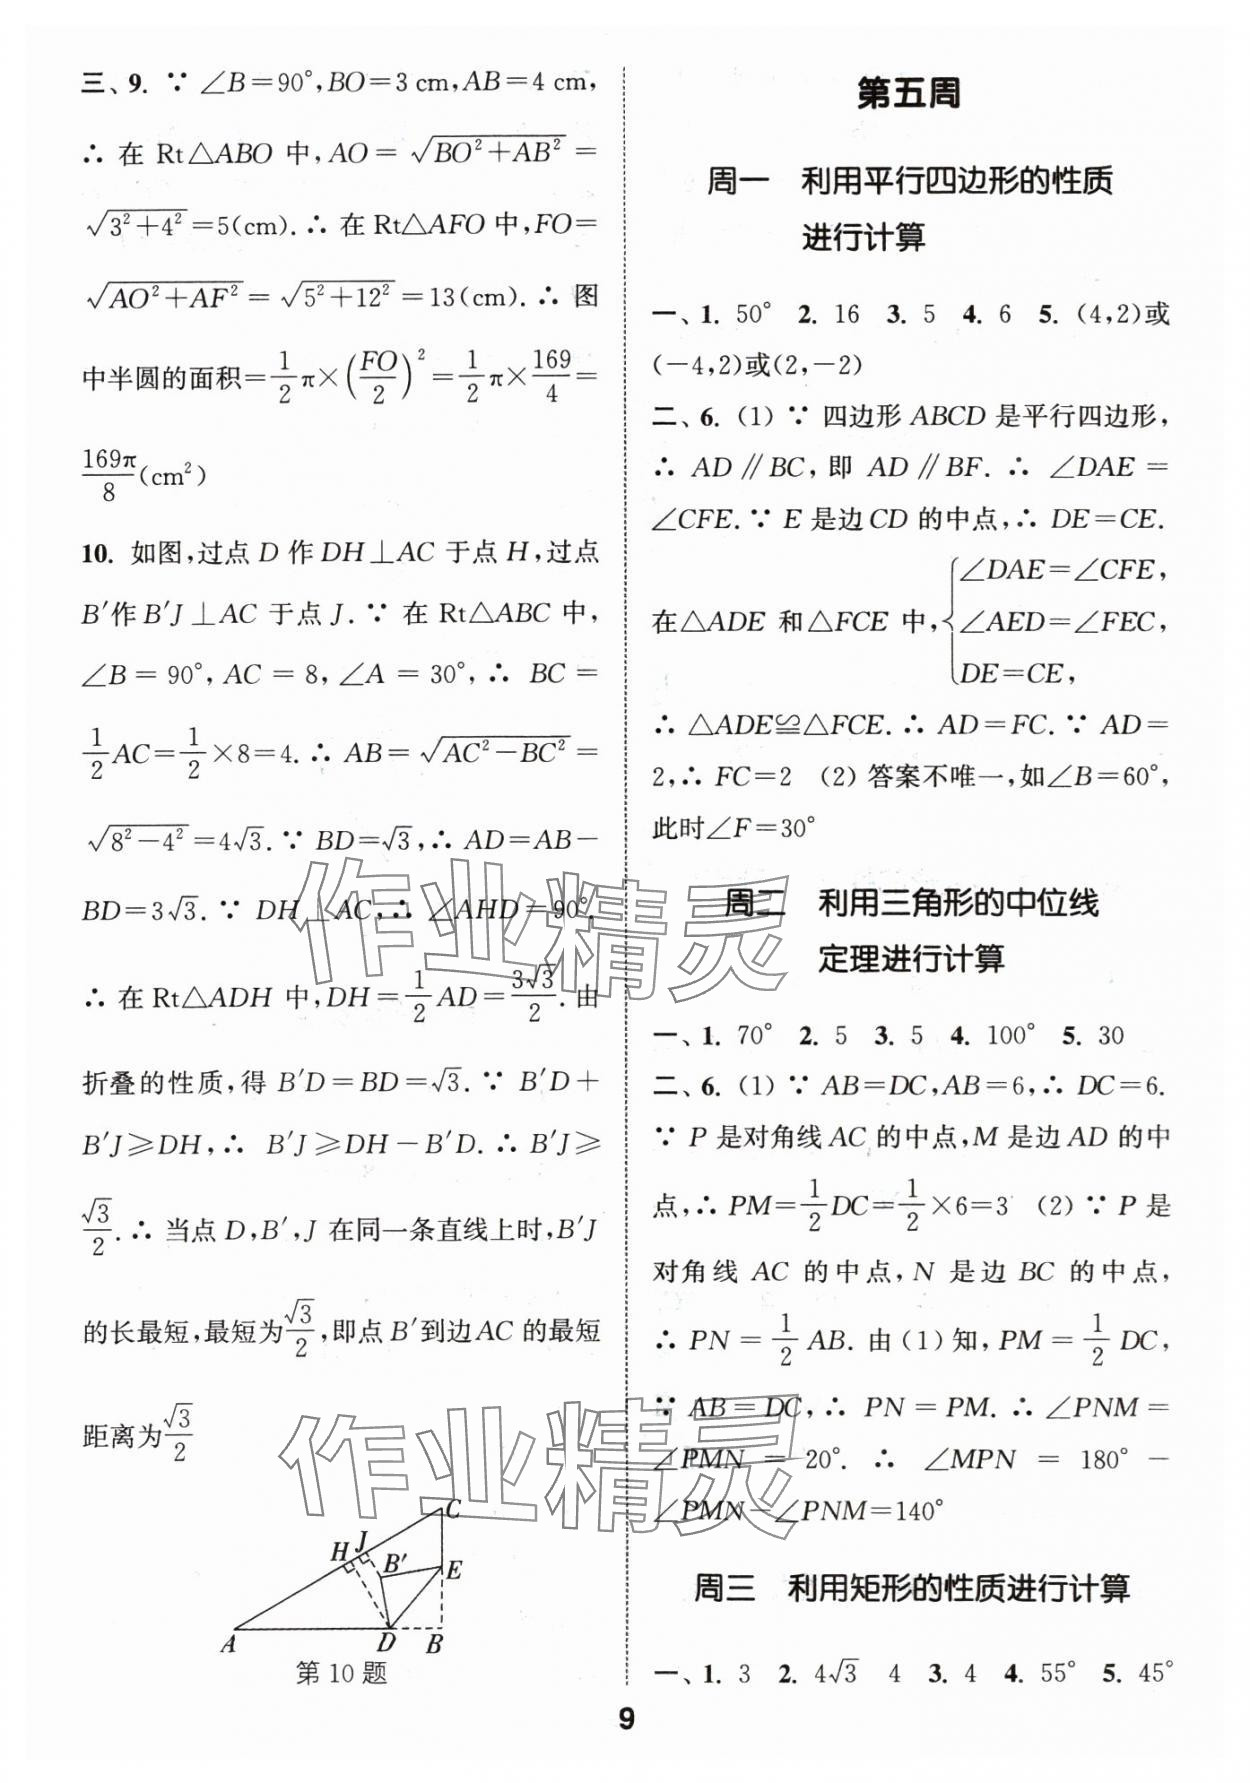 三、9. ∵ ∠B=90°,BO=3 cm,AB=4 cm,
∴ 在 Rt△ABO 中,AO=√(BO²+AB²)=
√(3²+4²)=5(cm).∴ 在 Rt△AFO 中,FO=
√(AO²+AF²)=√(5²+12²)=13(cm).∴ 图
中半圆的面积=1/2π×(FO/2)²=1/2π×169/4=
169π/8(cm²)
10. 如图,过点 D 作 DH⊥AC 于点 H,过点
B′作 B′J⊥AC 于点 J.∵ 在 Rt△ABC 中,
∠B=90°,AC=8,∠A=30°,∴ BC=
1/2AC=1/2×8=4.∴ AB=√(AC²-BC²)=
√(8²-4²)=4√3.∵ BD=√3,∴ AD=AB-
BD=3√3.∵ DH⊥AC,∴ ∠AHD=90°.
∴ 在 Rt△ADH 中,DH=1/2AD=3√3/2.由
折叠的性质,得 B′D=BD=√3.∵ B′D+
B′J≥DH,∴ B′J≥DH-B′D.∴ B′J≥
√3/2.∴ 当点 D,B′,J 在同一条直线上时,B′J
的长最短,最短为√3/2,即点 B′到边AC 的最短
距离为√3/2
C
J
H
B′
E
A
D
B
第 10 题
第五周
周一 利用平行四边形的性质
进行计算
一、1. 50° 2. 16 3. 5 4. 6 5. (4,2)或
(-4,2)或(2,-2)
二、6. (1) ∵ 四边形 ABCD 是平行四边形,
∴ AD∥BC,即 AD∥BF.∴ ∠DAE=
∠CFE.∵ E 是边 CD 的中点,∴ DE=CE.
∠DAE=∠CFE,
在△ADE 和△FCE 中,{∠AED=∠FEC,
DE=CE,
∴ △ADE≌△FCE.∴ AD=FC.∵ AD=
2,∴ FC=2 (2) 答案不唯一,如∠B=60°,
此时∠F=30°
周二 利用三角形的中位线
定理进行计算
一、1. 70° 2. 5 3. 5 4. 100° 5. 30
二、6. (1) ∵ AB=DC,AB=6,∴ DC=6.
∵ P 是对角线 AC 的中点,M 是边 AD 的中
点,∴ PM=1/2DC=1/2×6=3 (2) ∵ P 是
对角线 AC 的中点,N 是边 BC 的中点,
∴ PN=1/2AB.由(1)知,PM=1/2DC,
∵ AB=DC,∴ PN=PM.∴ ∠PNM=
∠PMN=20°.∴ ∠MPN=180°-
∠PMN-∠PNM=140°
周三 利用矩形的性质进行计算
一、1. 3 2. 4√3 4 3. 4 4. 55° 5. 45°
9
作业精灵
作业精灵